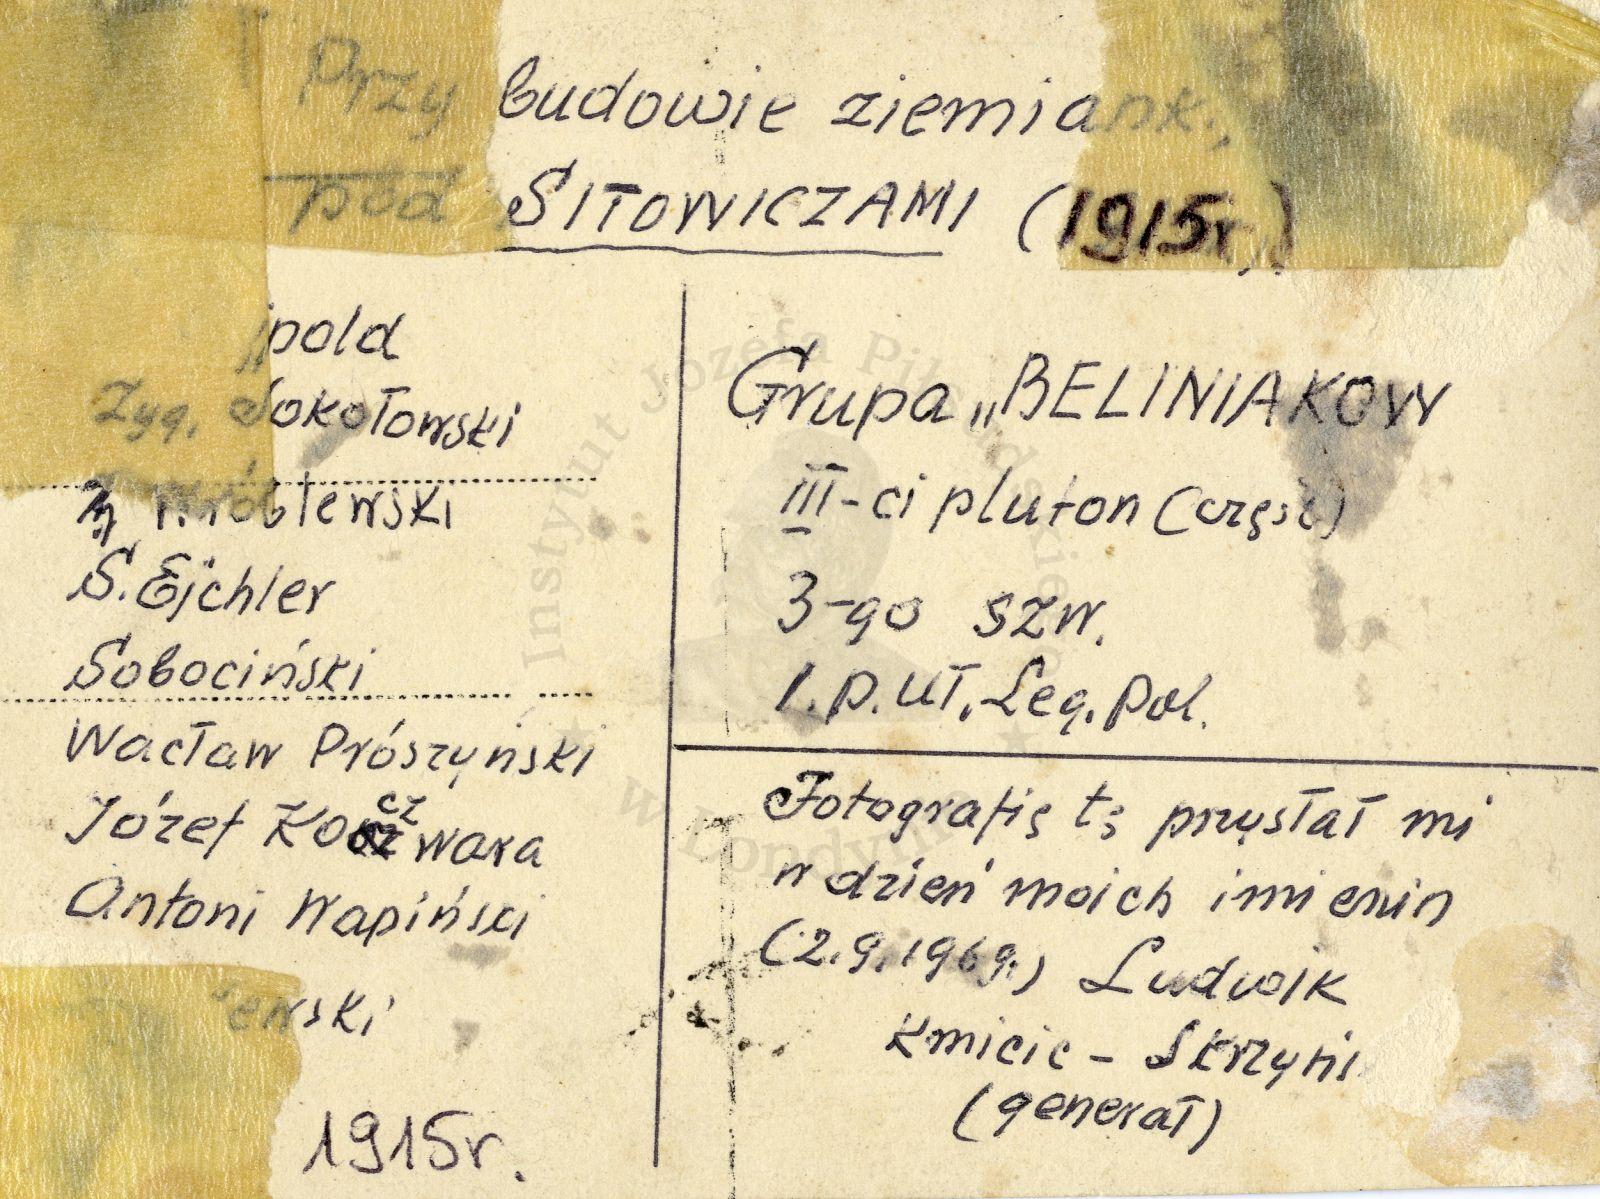 Przy budowie ziemianki
pod SITOWICZAMI (1915r.)
Zyg. Sokołowski
Wróblewski
S. Ejchler
Sobociński
Wacław Prószyński
Józef Koczwara
Antoni Wapiński
1915r.
Grupa „BELINIAKOW
III-ci pluton (część)
3-go szw.
1.p.uł. Leg. Pol.
Fotografię tę przysłał mi
w dzień moich imienin
(2.9.1969.) Ludwik
Kmicic - Skrzyń
(generał)
Instytut Józefa Piłsudskiego
w Londynie